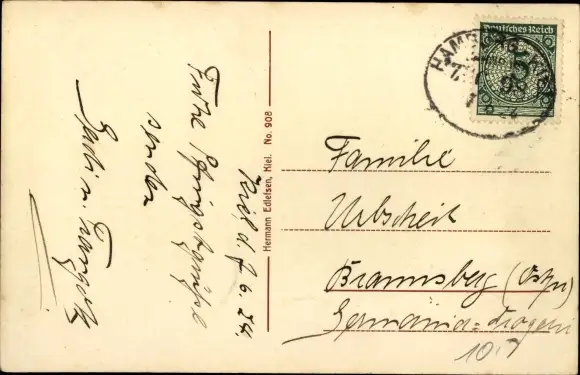 Kiel d. 7.6.24.
Frohe Pfingstgrüße
senden
Hermann Edlefsen, Kiel. No. 908
Deutsches Reich
5
HAMBURG-KIEL
7.6.24
Familie
Urbscheit
Braunsberg (Ostpr)
Germania-Drogerie